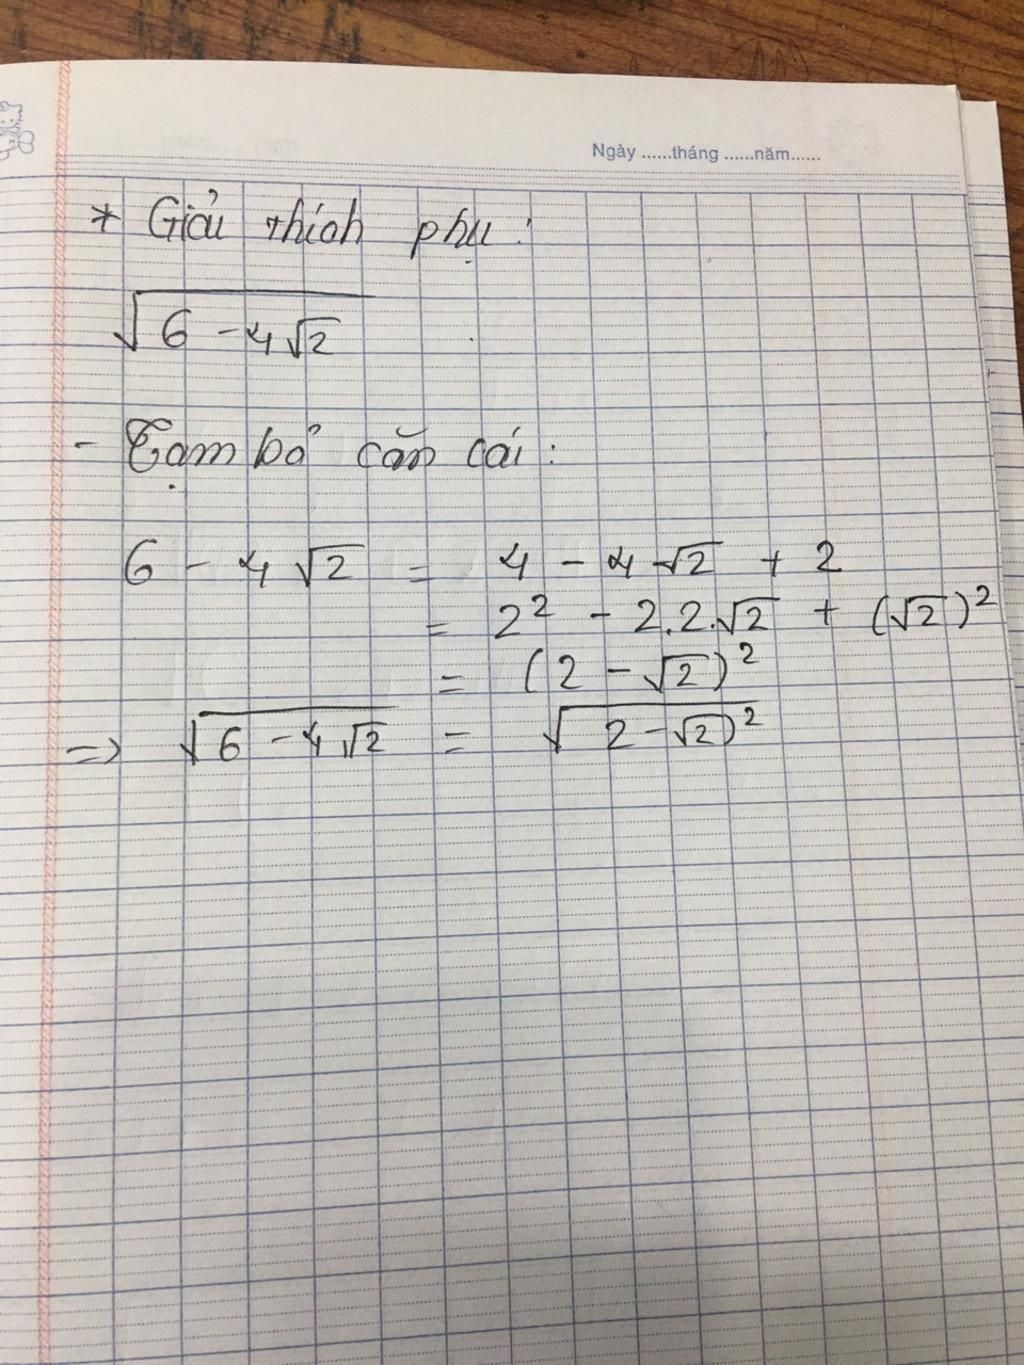 Ngày ......tháng ......năm......
* Giải thích phụ :
√(6 - 4√2)
- Tạm bỏ căn cái :
6 - 4√2 = 4 - 4√2 + 2
= 2² - 2.2.√2 + (√2)²
= (2 - √2)²
=> √(6 - 4√2) = √(2 - √2)²